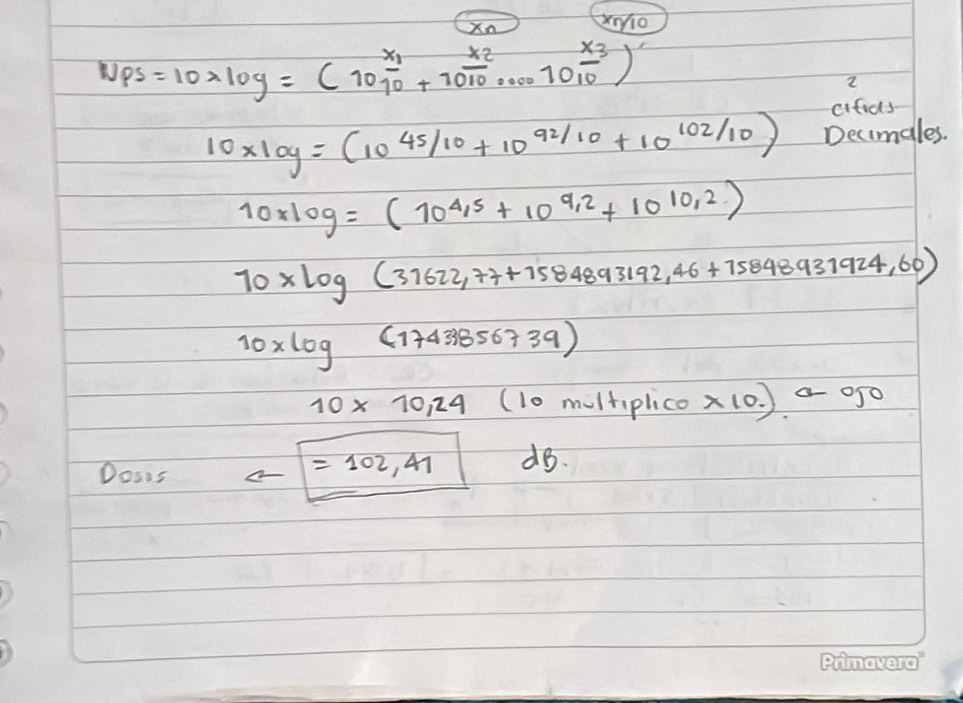 xn xn/10
Nps = 10 x log = ( 10 x1/10 + 10 x2/10 .... 10 x3/10 )
2
cifras
10 x log = (10 45/10 + 10 92/10 + 10 102/10) Decimales.
10 x log = ( 10 4,5 + 10 9,2 + 10 10,2 )
10 x log (31622,77 + 1584893192,46 + 15848931924,60)
10 x log (17433856739)
10 x 10,24 (lo multiplico x 10.) ← ojo
Dosis ← = 102,41 dB.
Primavera®